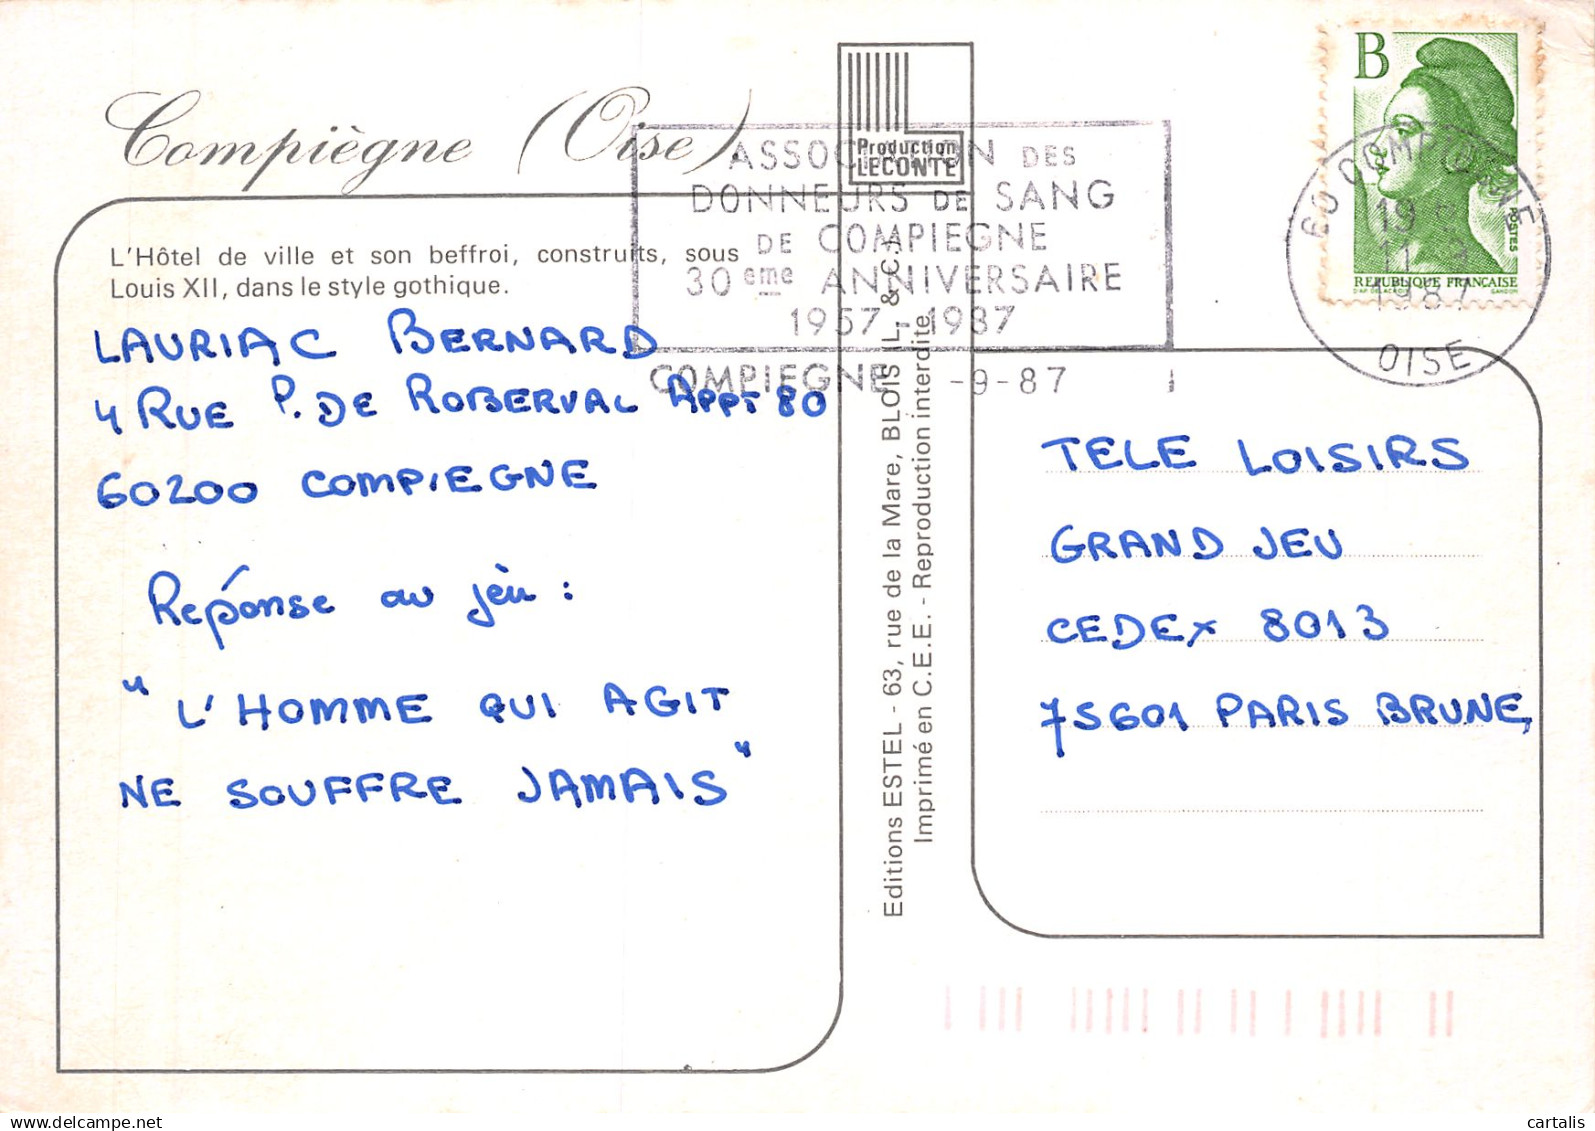 Compiègne (Oise).
L'Hôtel de ville et son beffroi, construits, sous
Louis XII, dans le style gothique.
LAURIAC BERNARD
4 RUE P. DE ROBERVAL APPT 80
60200 COMPIEGNE
Réponse au jeu :
" L'HOMME QUI AGIT
NE SOUFFRE JAMAIS "
Production
LECONTE
ASSOCIATION DES
DONNEURS DE SANG
DE COMPIEGNE
30eme ANNIVERSAIRE
1957 - 1987
COMPIEGNE -9-87
Editions ESTEL - 63, rue de la Mare, BLOIS IL, & C.
Imprimé en C.E.E. - Reproduction interdite
B
POSTES
REPUBLIQUE FRANÇAISE
D'AP. DELACROIX GANDON
60 COMPIEGNE
19
11
1987
OISE
TELE LOISIRS
GRAND JEU
CEDEX 8013
75601 PARIS BRUNE
www.delcampe.net
cartalis